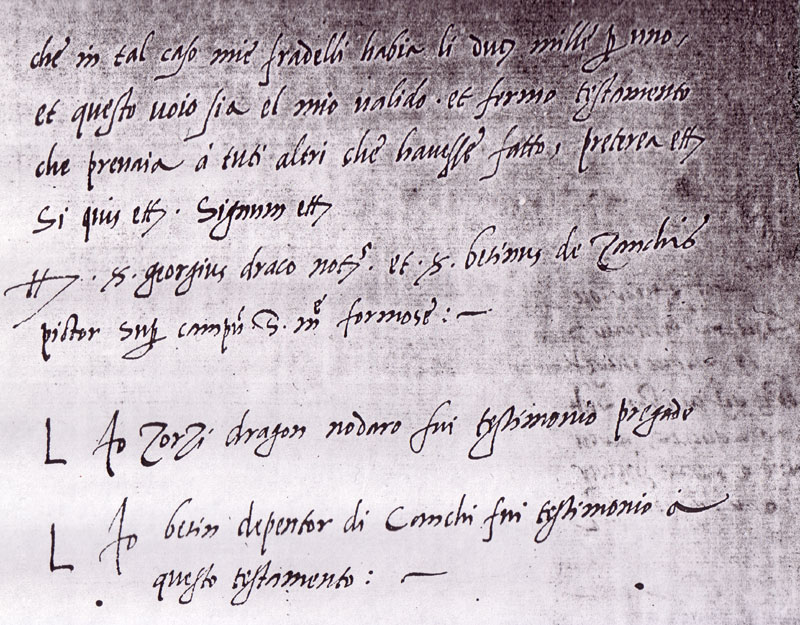 che in tal caso mie fradelli habia li duc mille p uno,
et questo voio sia el mio valido. et fermo testamento
che prevaia á tuti altri che havesse fatto, preterea etc
Si quis etc. Signum etc
tt. S. georgius draco nots. et. S. betinus de Zanchis
pictor sup campu S. me formose: —
L Io Zorzi dragon nodaro fui testimonio pregado
L Io betin depentor di Canchi fui testimonio á
questo testamento: —